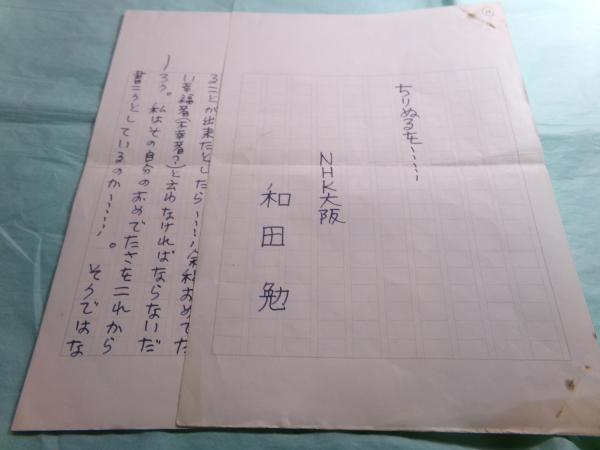 ちりぬるを……
NHK大阪
和田 勉
ることが出来たとしたら……おめでた
い幸福者(不幸者?)と云わなければならないだ
ろう。
私はその自分のおめでたさをこれから
書こうとしているのか……。そうではな